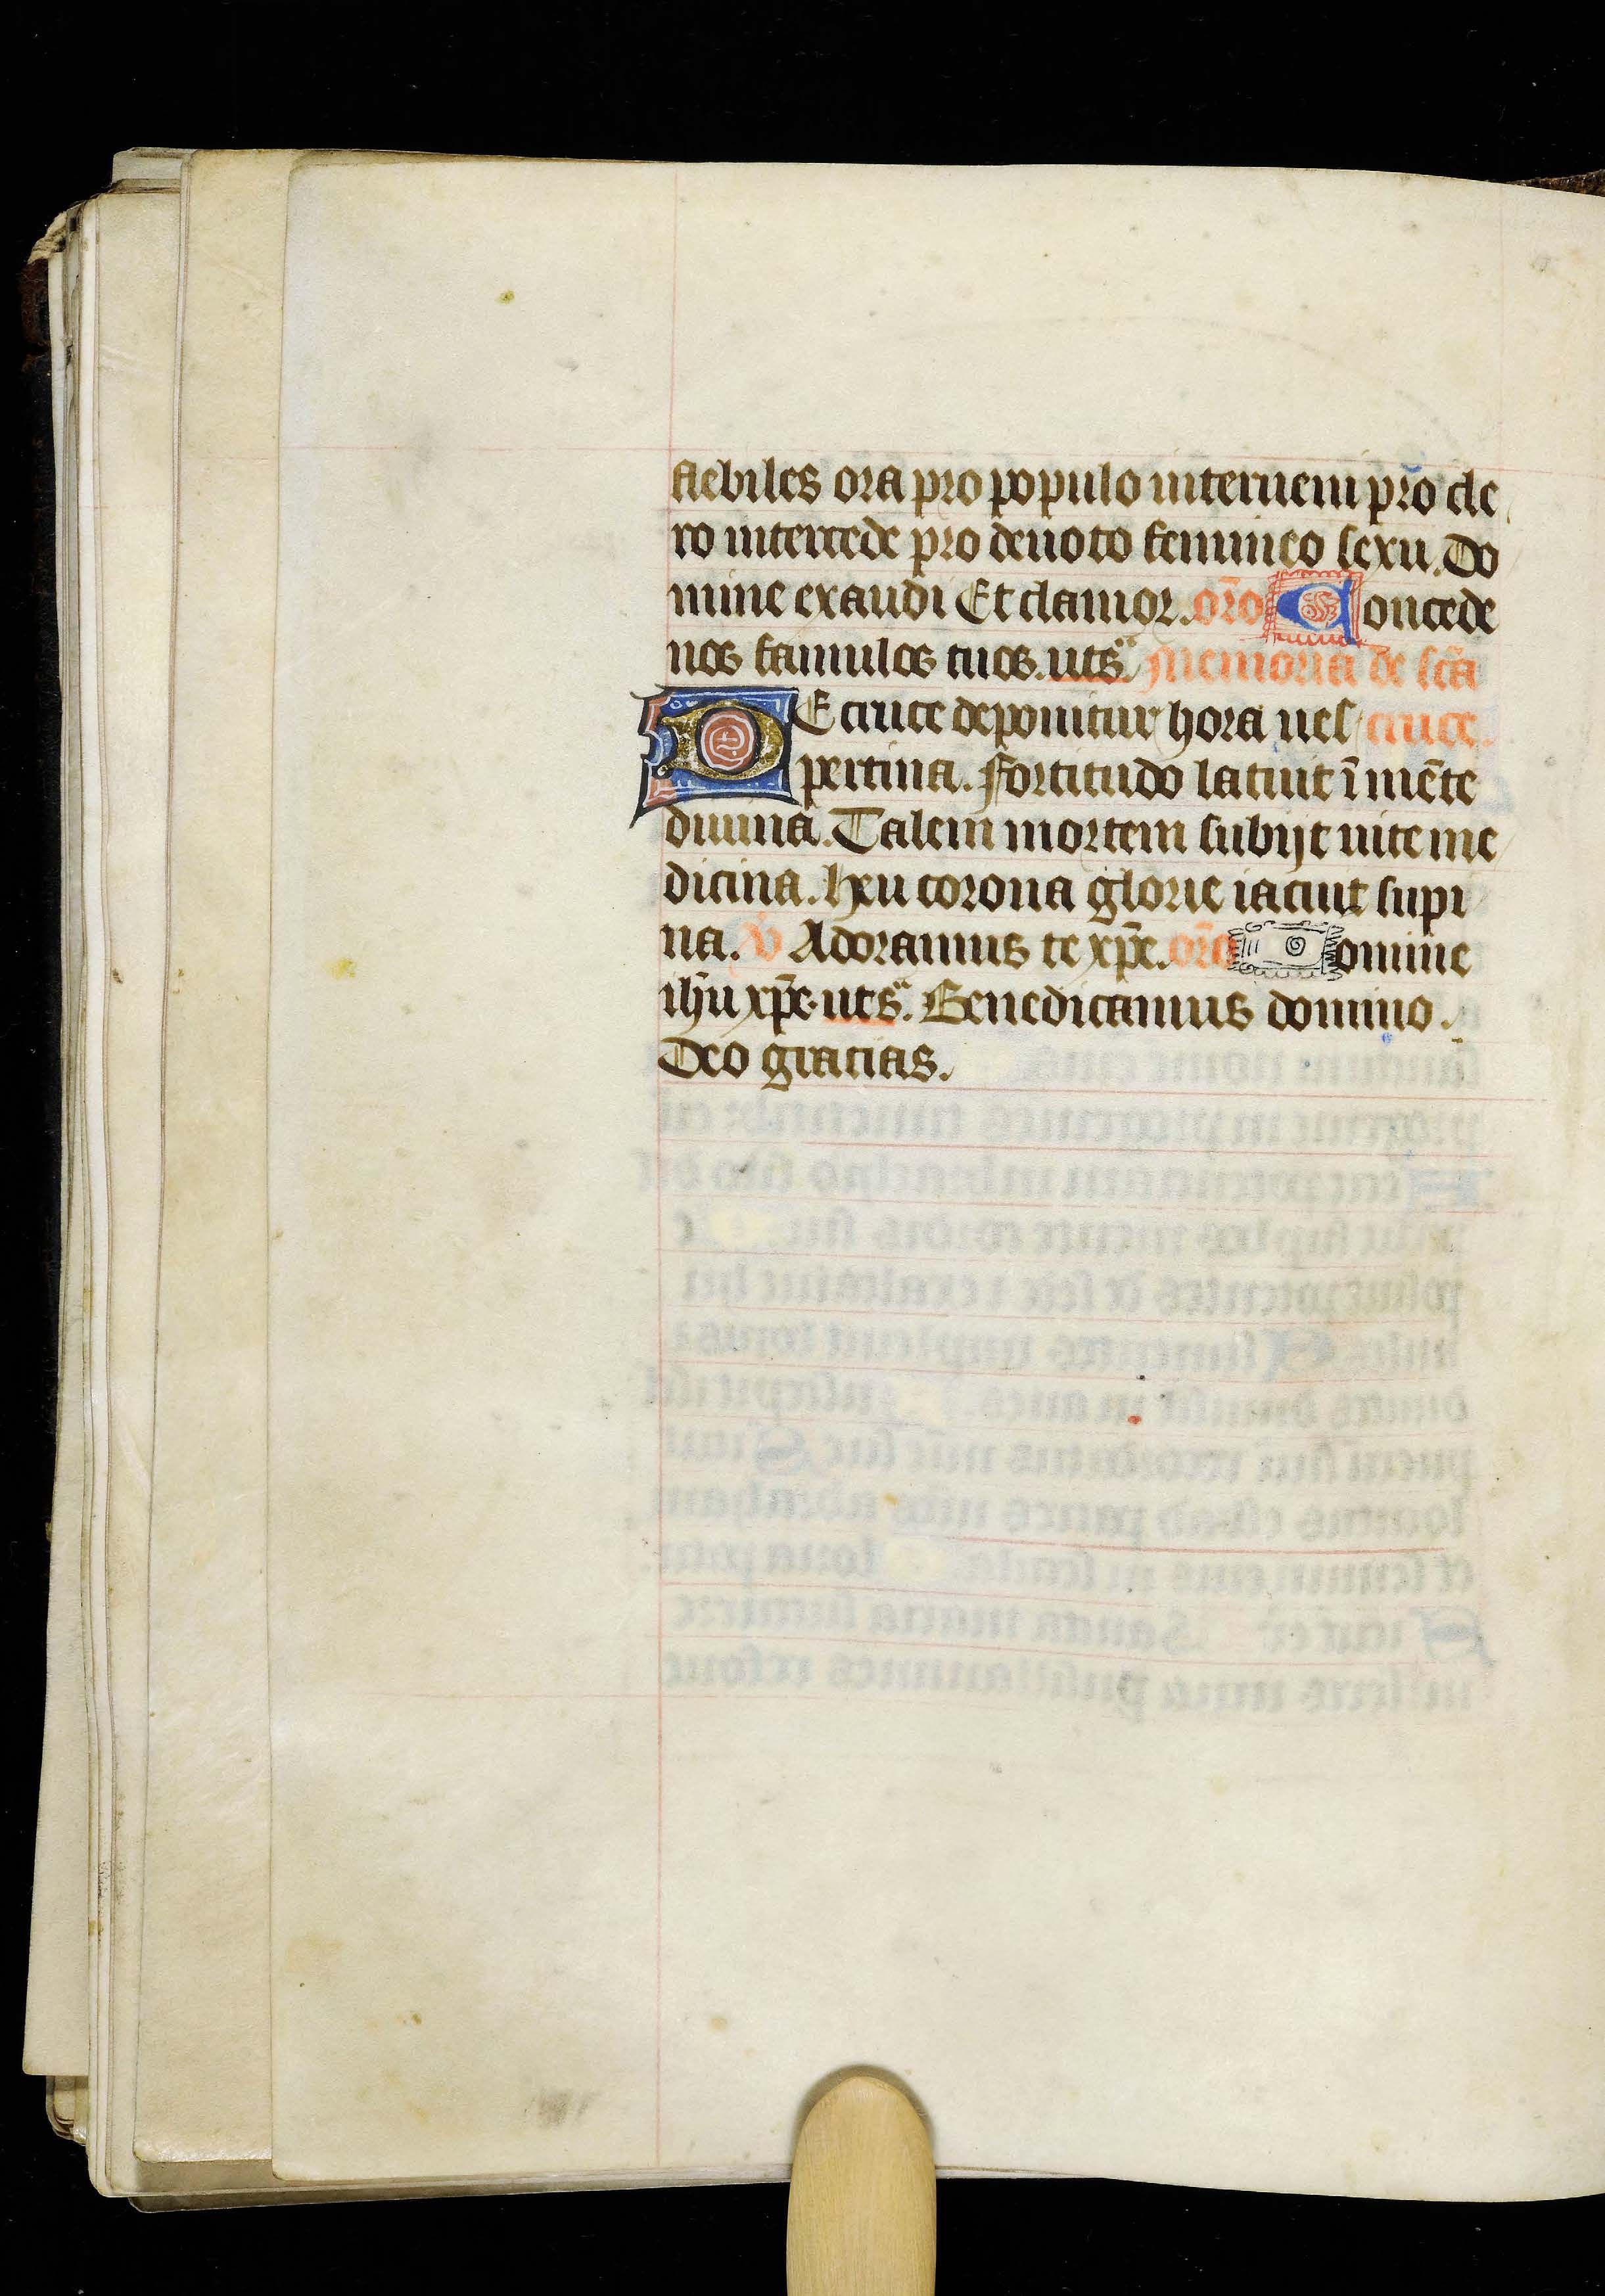 flebiles ora pro populo interueni pro cle
ro intercede pro deuoto femineo sexu. Do
mine exaudi Et clamor. oro̅ Concede
nos famulos tuos. ut sª. Memoria de sc̅a
DE cruce deponitur hora ues cruce.
pertina. Fortitudo latuit i̅ me̅te
diuina. Talem mortem subijt uite me
dicina. heu corona glorie iacuit supi
na. V Adoramus te xp̅e. oro̅ Domine
ihu̅ xp̅e. ut sª. Benedicamus domino.
Deo gracias.